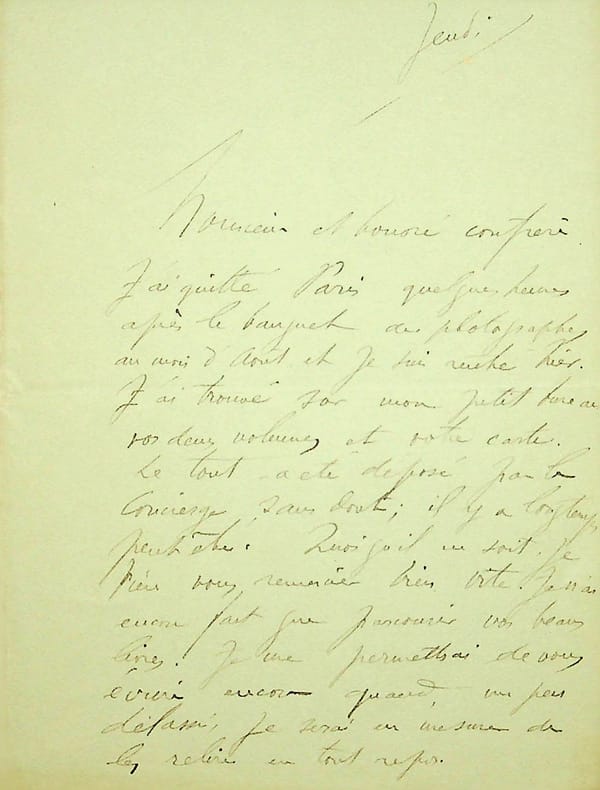 Jeudi
Monsieur et honoré confrère
J'ai quitté Paris quelques heures
après le banquet des photographes
au mois d'Aout et je suis rentré hier.
J'ai trouvé sur mon petit bureau
vos deux volumes et votre carte.
Le tout a été déposé par la
Concierge sans doute; il y a longtemps
peut être. Quoiqu'il en soit. Je
viens vous remercier bien vite. Je n'ai
encore fait que parcourir vos beaux
livres. Je me permettrai de vous
écrire encore quand, un peu
délassé, je serai en mesure de
les relire en tout repos.